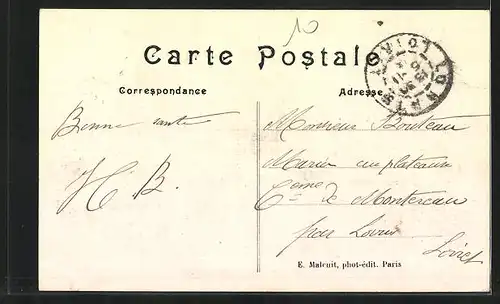 10
Carte Postale
Correspondance
Adresse
Bonne santé
H. B.
Monsieur Bouteau
Marin au plateau
Cème de Montereau
par Lorris
Loiret
E. Maleuit, phot-édit. Paris